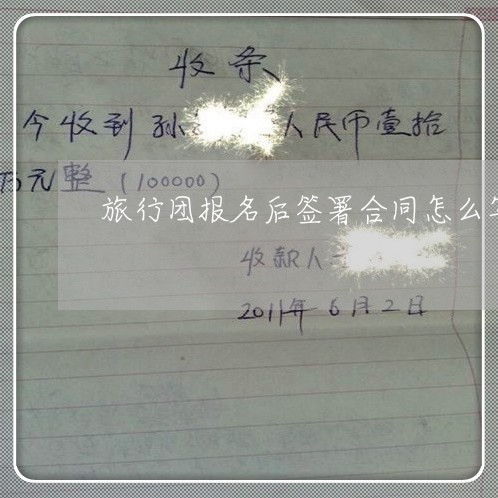 收条
今收到孙 人民币壹拾
万元整（100000）
旅行团报名后签署合同怎么
收款人
2011年6月2日